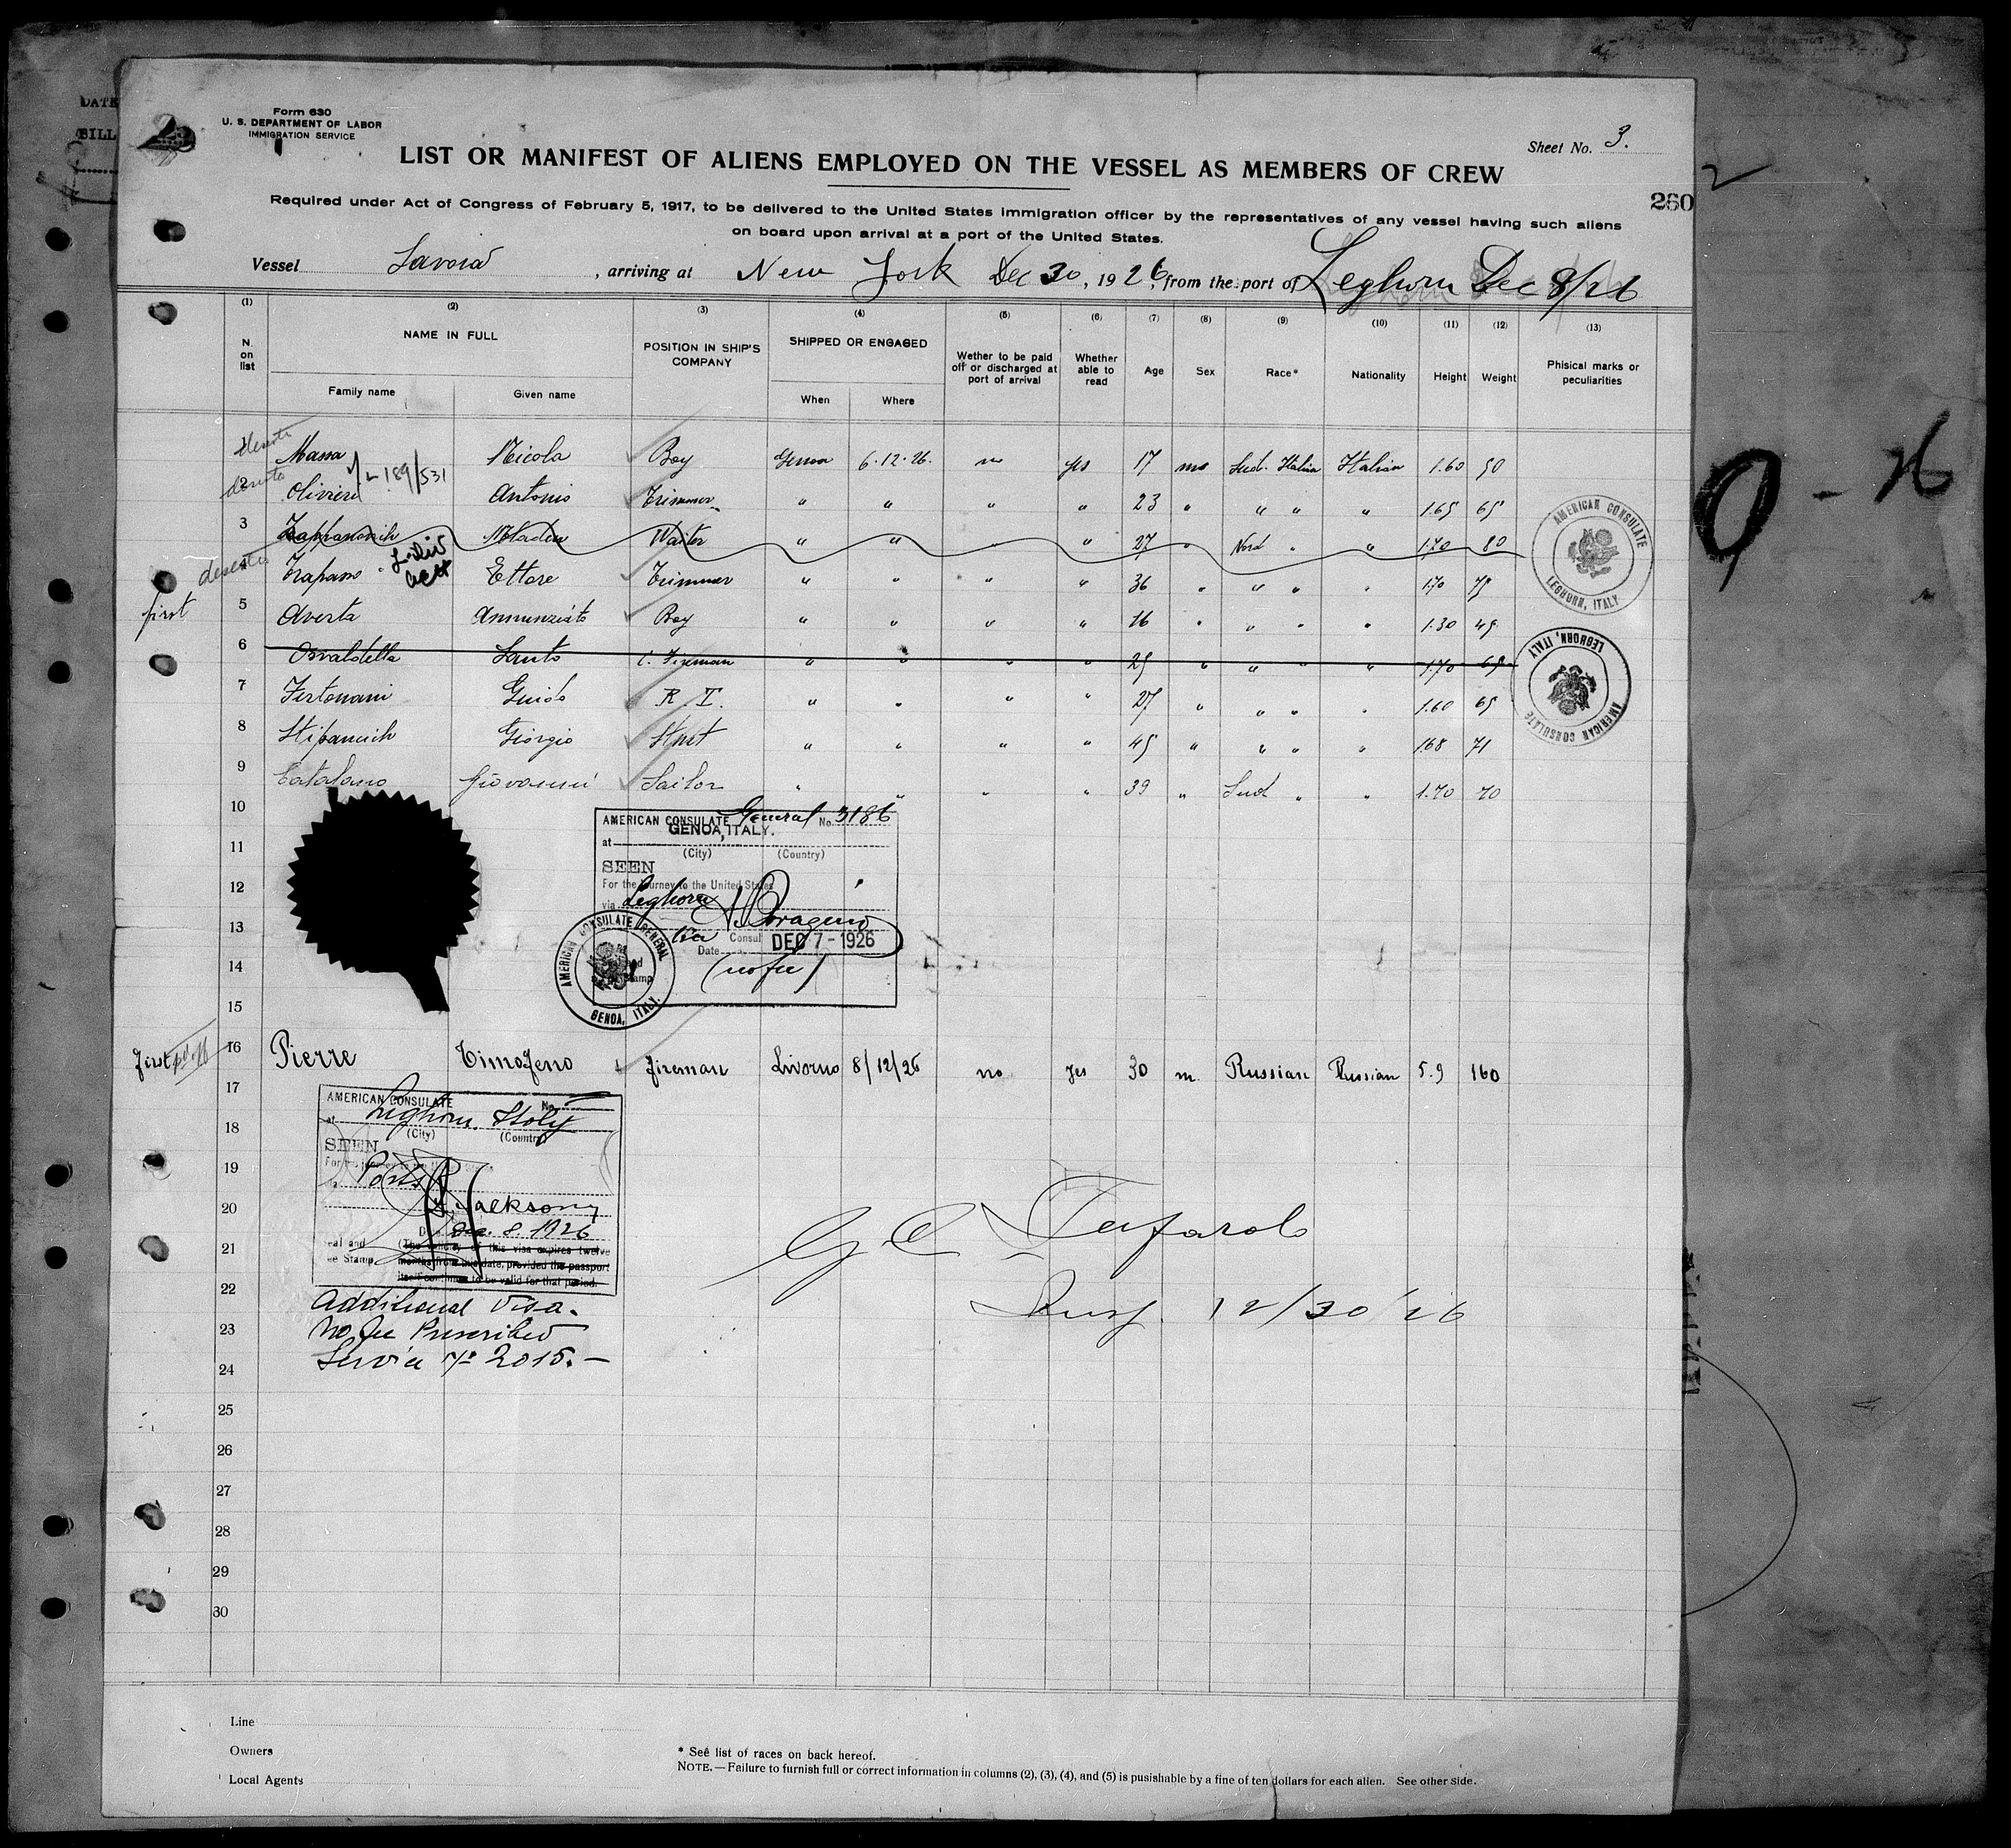 Form 630
U. S. DEPARTMENT OF LABOR
IMMIGRATION SERVICE
Sheet No. 3.
LIST OR MANIFEST OF ALIENS EMPLOYED ON THE VESSEL AS MEMBERS OF CREW
260
Required under Act of Congress of February 5, 1917, to be delivered to the United States immigration officer by the representatives of any vessel having such aliens
on board upon arrival at a port of the United States.
Vessel Savoia, arriving at New York Dec 30, 1926, from the port of Leghorn Dec 8/26
(1) (2) (3) (4) (5) (6) (7) (8) (9) (10) (11) (12) (13)
N. on list NAME IN FULL POSITION IN SHIP'S COMPANY SHIPPED OR ENGAGED Wether to be paid off or discharged at port of arrival Whether able to read Age Sex Race* Nationality Height Weight Phisical marks or peculiarities
Family name Given name When Where
Massa Nicola Boy Genoa 6.12.26. no yes 17 ms Sud. Italian Italian 1.60 50
189/531
2 Olivieri Antonio Trimmer " " " " 23 " " " " 1.65 65
3 Waiter " " " 27 " Nord " " 1.70 80
Trapano Ettore Trimmer " " " " 36 " " " " 1.70 75
first 5 Averta Annunziato Boy " " " " 16 " " " " 1.30 45
6 Osvaldella Santo C. Fireman " " " " 25 " " " " 1.70 65
7 Fertonani Guido R.T. " " " " 27 " " " " 1.60 65
8 Stipancich Giorgio " " " " 45 " " " " 1.68 71
9 Catalano Giovanni Sailor " " " " 39 " Sud " " 1.70 70
10
AMERICAN CONSULATE General No. 3186
GENOA, ITALY.
11
at
(City) (Country)
SEEN
12
For the journey to the United States
via Leghorn
13
Consul
Date DEC 7-1926
14
(no fee)
AMERICAN CONSULATE GENERAL
GENOA, ITALY.
15
first 16 Pierre Timofeno fireman Livorno 8/12/26 no yes 30 m. Russian Russian 5.9 160
17
AMERICAN CONSULATE No.
at Leghorn. Italy
18
(City) (Country)
SEEN
19
20
Jackson
Dec. 8. 1926
21
(The validity of this visa expires twelve
months from this date, provided the passport
itself continues to be valid for that period.
22
Additional Visa.
23
No fee Prescribed
Service No 2015. -
24
12/30/26
25
26
27
28
29
30
AMERICAN CONSULATE
LEGHORN, ITALY.
AMERICAN CONSULATE
LEGHORN, ITALY
Line
Owners
Local Agents
* See list of races on back hereof.
NOTE. — Failure to furnish full or correct information in columns (2), (3), (4), and (5) is pusishable by a fine of ten dollars for each alien. See other side.